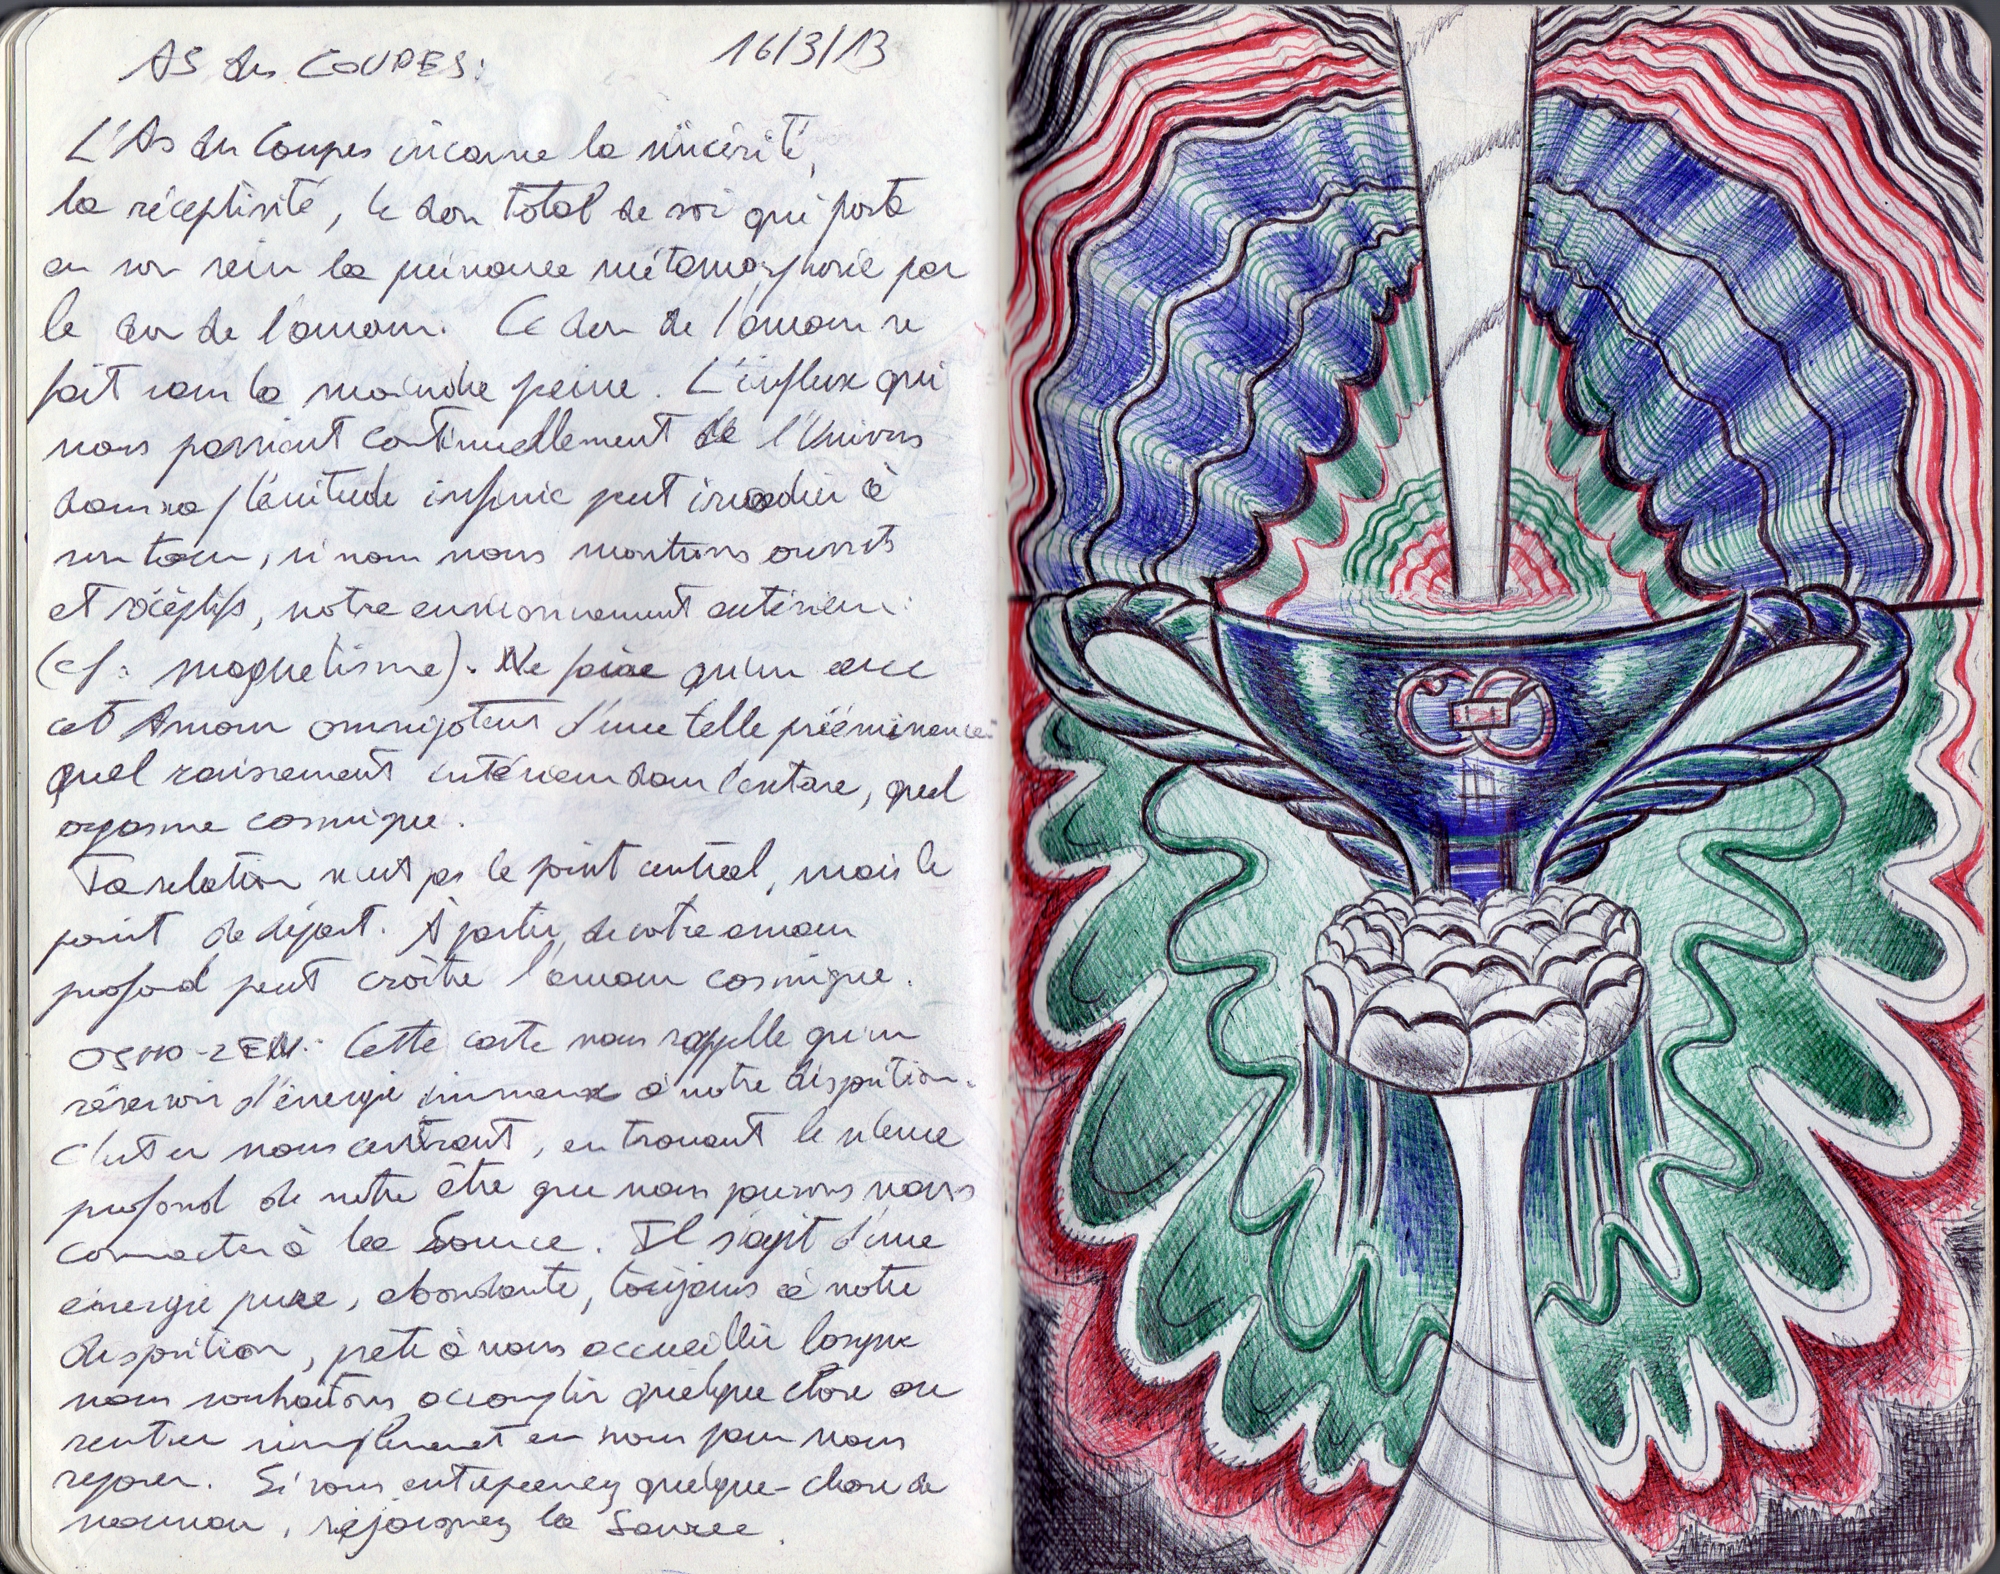 AS des COUPES:
16/3/13
L'As des Coupes incarne la sincérité,
la réceptivité, le don total de soi qui porte
en son sein la puissance métamorphosée par
le don de l'amour. Ce don de l'amour se
fait sans la moindre peine. L'influx qui
nous parvient continuellement de l'Univers
dans sa plénitude infinie peut irradier à
son tour, si nous nous montrons ouverts
et réceptifs, notre environnement extérieur.
(cf: magnétisme). Ne faire qu'un avec
cet Amour omnipotent d'une telle prééminence
quel ravissement intérieur dans l'extase, quel
orgasme cosmique.
Ta relation n'est pas le point central, mais le
point de départ. À partir de votre amour
profond peut croître l'amour cosmique.
OSHO-ZEN: Cette carte nous rappelle qu'un
réservoir d'énergie immense à notre disposition.
C'est en nous centrant, en trouvant le
profond de notre être que nous pouvons nous
connecter à la Source. Il s'agit d'une
énergie pure, abondante, toujours à notre
disposition, prête à nous accueillir lorsque
nous souhaitons accomplir quelque chose ou
rentrer simplement en nous pour nous
reposer. Si vous entreprenez quelque-chose de
nouveau, rejoignez la Source.